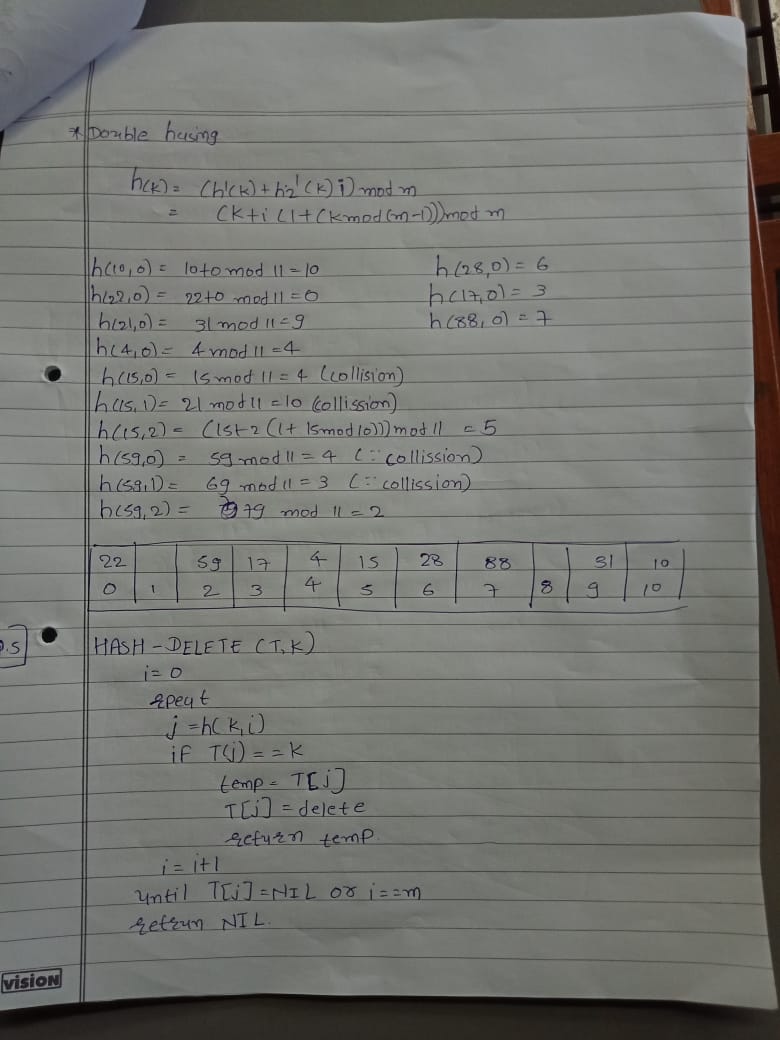 * Double hasing
h(k) = (h'(k) + h2'(k) i) mod m
= (k+i (1+(kmod(m-1)))mod m
h(10,0) = 10+0 mod 11 = 10
h(28,0) = 6
h(22,0) = 22+0 mod 11 = 0
h(17,0) = 3
h(21,0) = 31 mod 11 = 9
h(88,0) = 7
h(4,0) = 4 mod 11 = 4
h(15,0) = 15 mod 11 = 4 (collision)
h(15,1) = 21 mod 11 = 10 (collission)
h(15,2) = (15+2(1+15mod10))) mod 11 = 5
h(59,0) = 59 mod 11 = 4 (∵ collission)
h(59,1) = 69 mod 11 = 3 (∵ collission)
h(59,2) = 79 mod 11 = 2
22 59 17 4 15 28 88 31 10
0 1 2 3 4 5 6 7 8 9 10
.5
HASH-DELETE (T,K)
i=0
repeat
j=h(k,i)
if T(j) == k
temp = T[j]
T[j] = delete
return temp.
i=i+1
until T[j]=NIL or i==m
retrun NIL.
vision